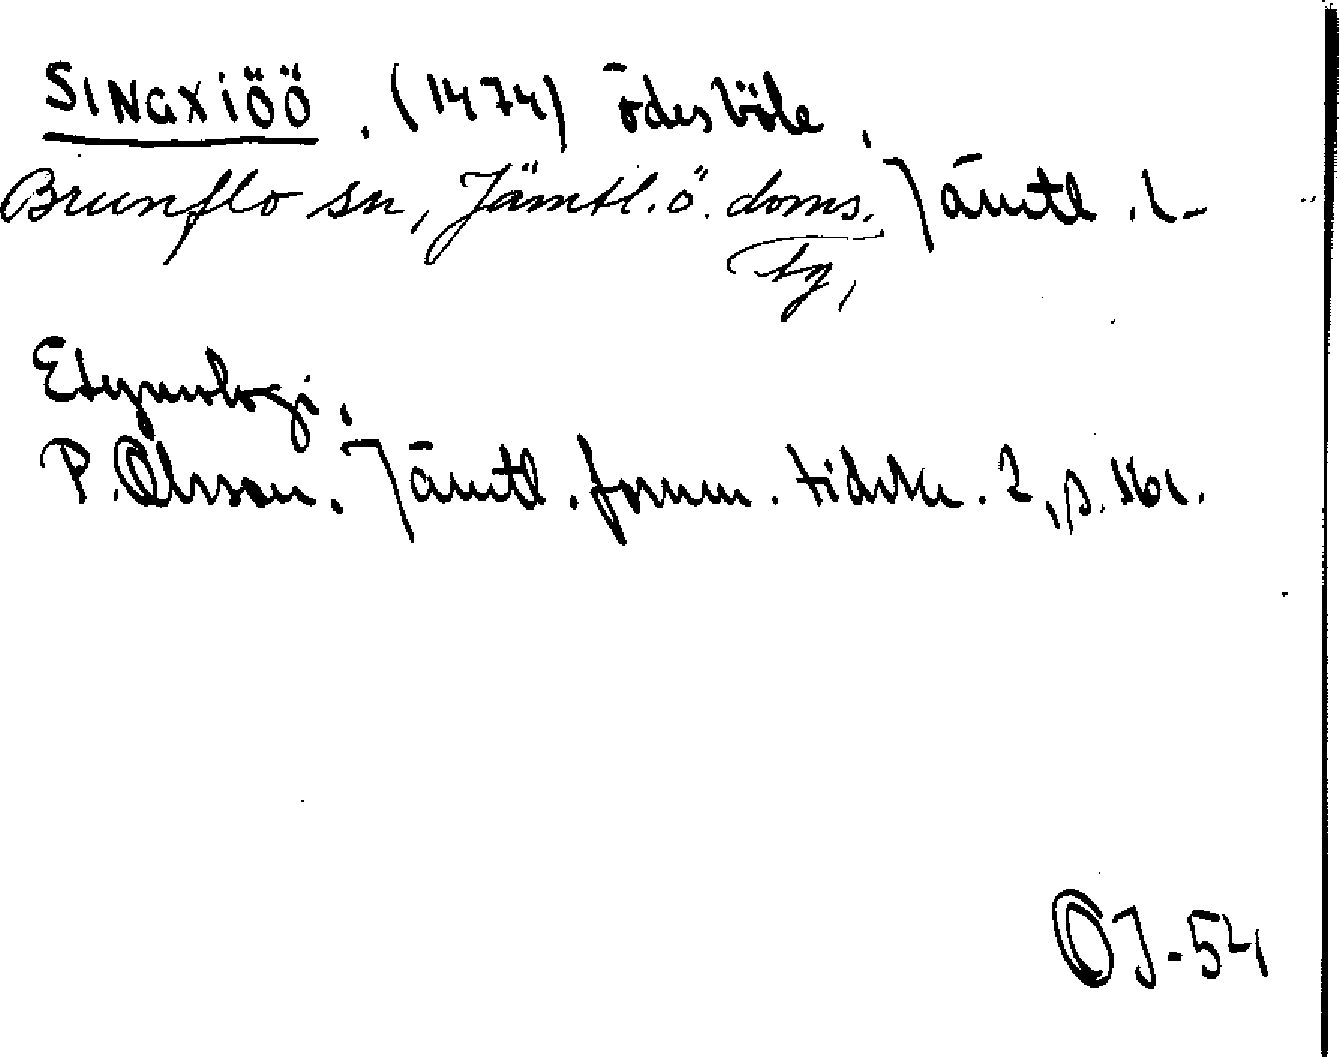 SINGXIÖÖ. (1474) ödesböle,
Brunflo sn, Jämtl. ö. doms. Jämtl. l.
tg,
Etymologi.
P. Olsson. Jämtl. fornm. tidskr. 2, s. 161.
OJ-54